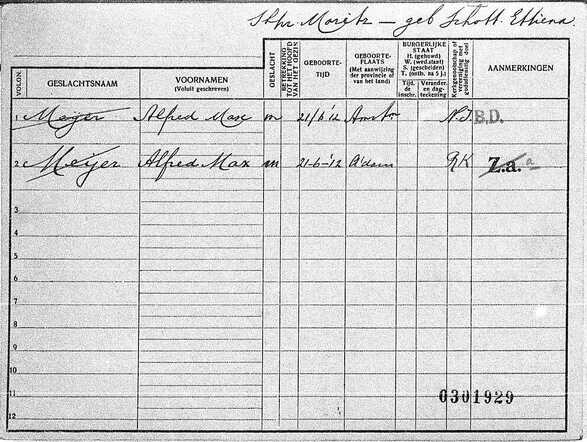 Moritz — geb Schott. Ettiena.
VOLGN. GESLACHTSNAAM VOORNAMEN (Voluit geschreven) GESLACHT BETREKKING TOT HET HOOFD VAN HET GEZIN GEBOORTE-TIJD GEBOORTE-PLAATS (Met aanwijzing der provincie of van het land) BURGERLIJKE STAAT H. (gehuwd) W. (wed.staat) S. (gescheiden) T. (ontb. na 5 j.) Tijd. de inschr. Verander. en dag-teekening Kerkgenootschap of vereeniging met godsdienstig doel AANMERKINGEN
1 Meyer Alfred Max m 21/6 '12 Amstdm N.I. B.D.
2 Meijer Alfred Max m 21-6-'12 A'dam RK Z.a. a
3
4
5
6
7
8
9
10
11 0301929
12